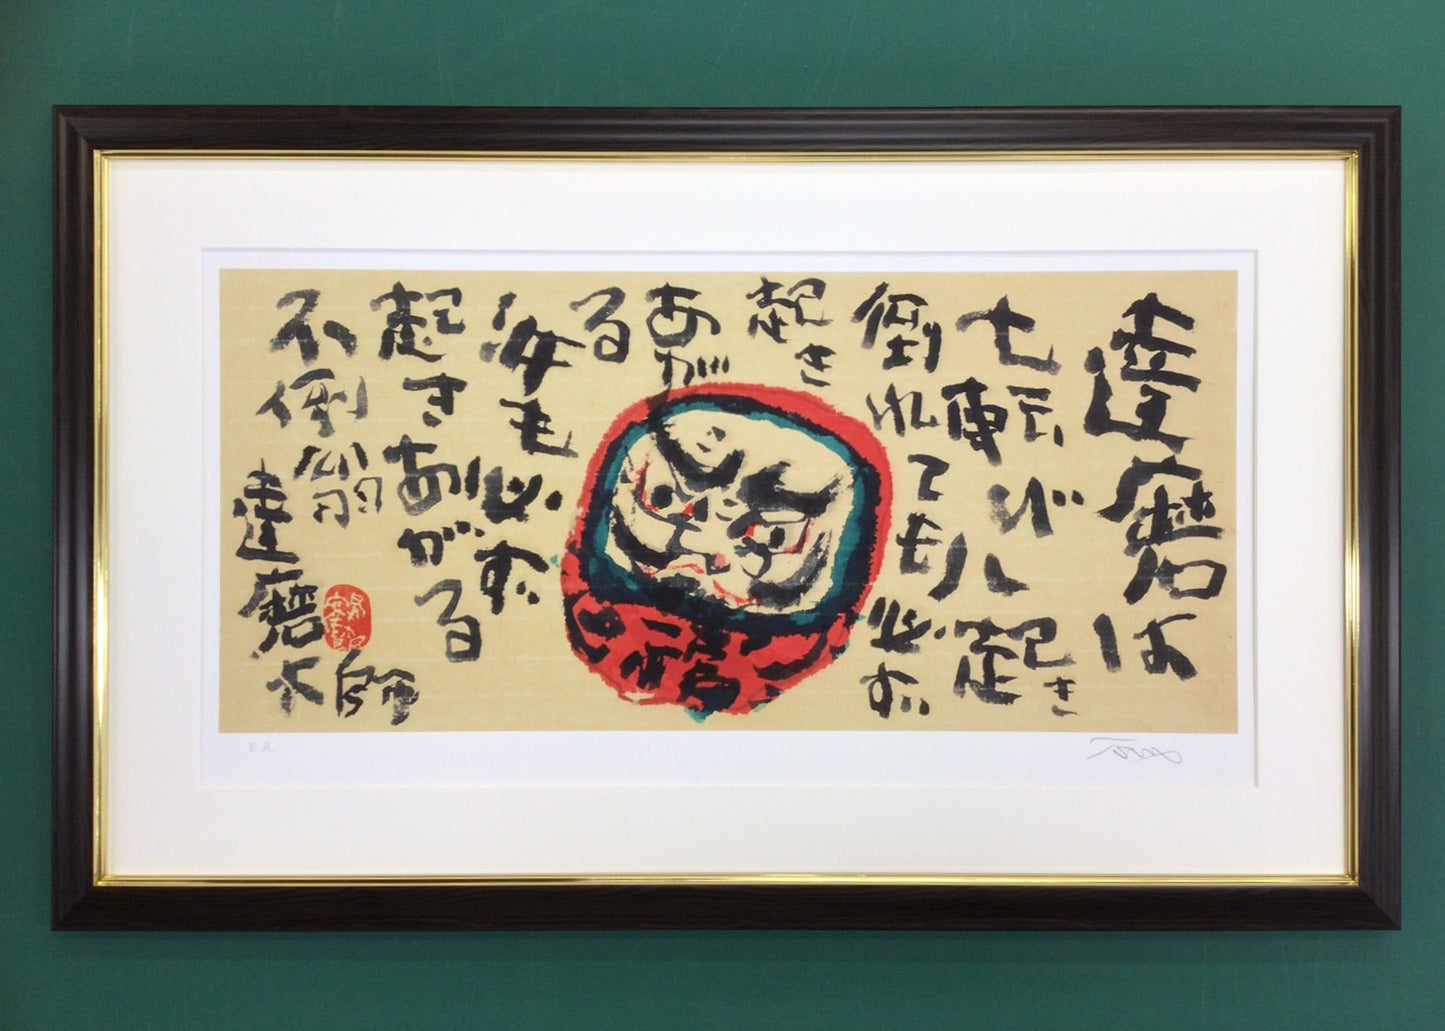 達磨は
七転び八起き
倒れても必ず
起き
あが
る
汝も必ず
起きあがる
不倒翁
達磨大師
福
E.A.